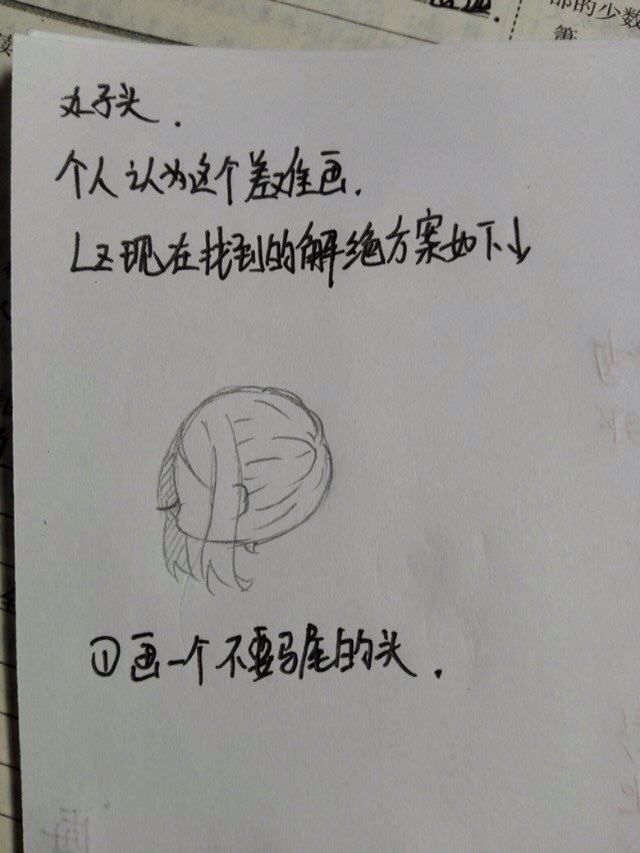 部的少数
篇
丸子头.
个人认为这个差难画.
Lz现在找到的解绝方案如下↓
①画一个不要马尾的头.